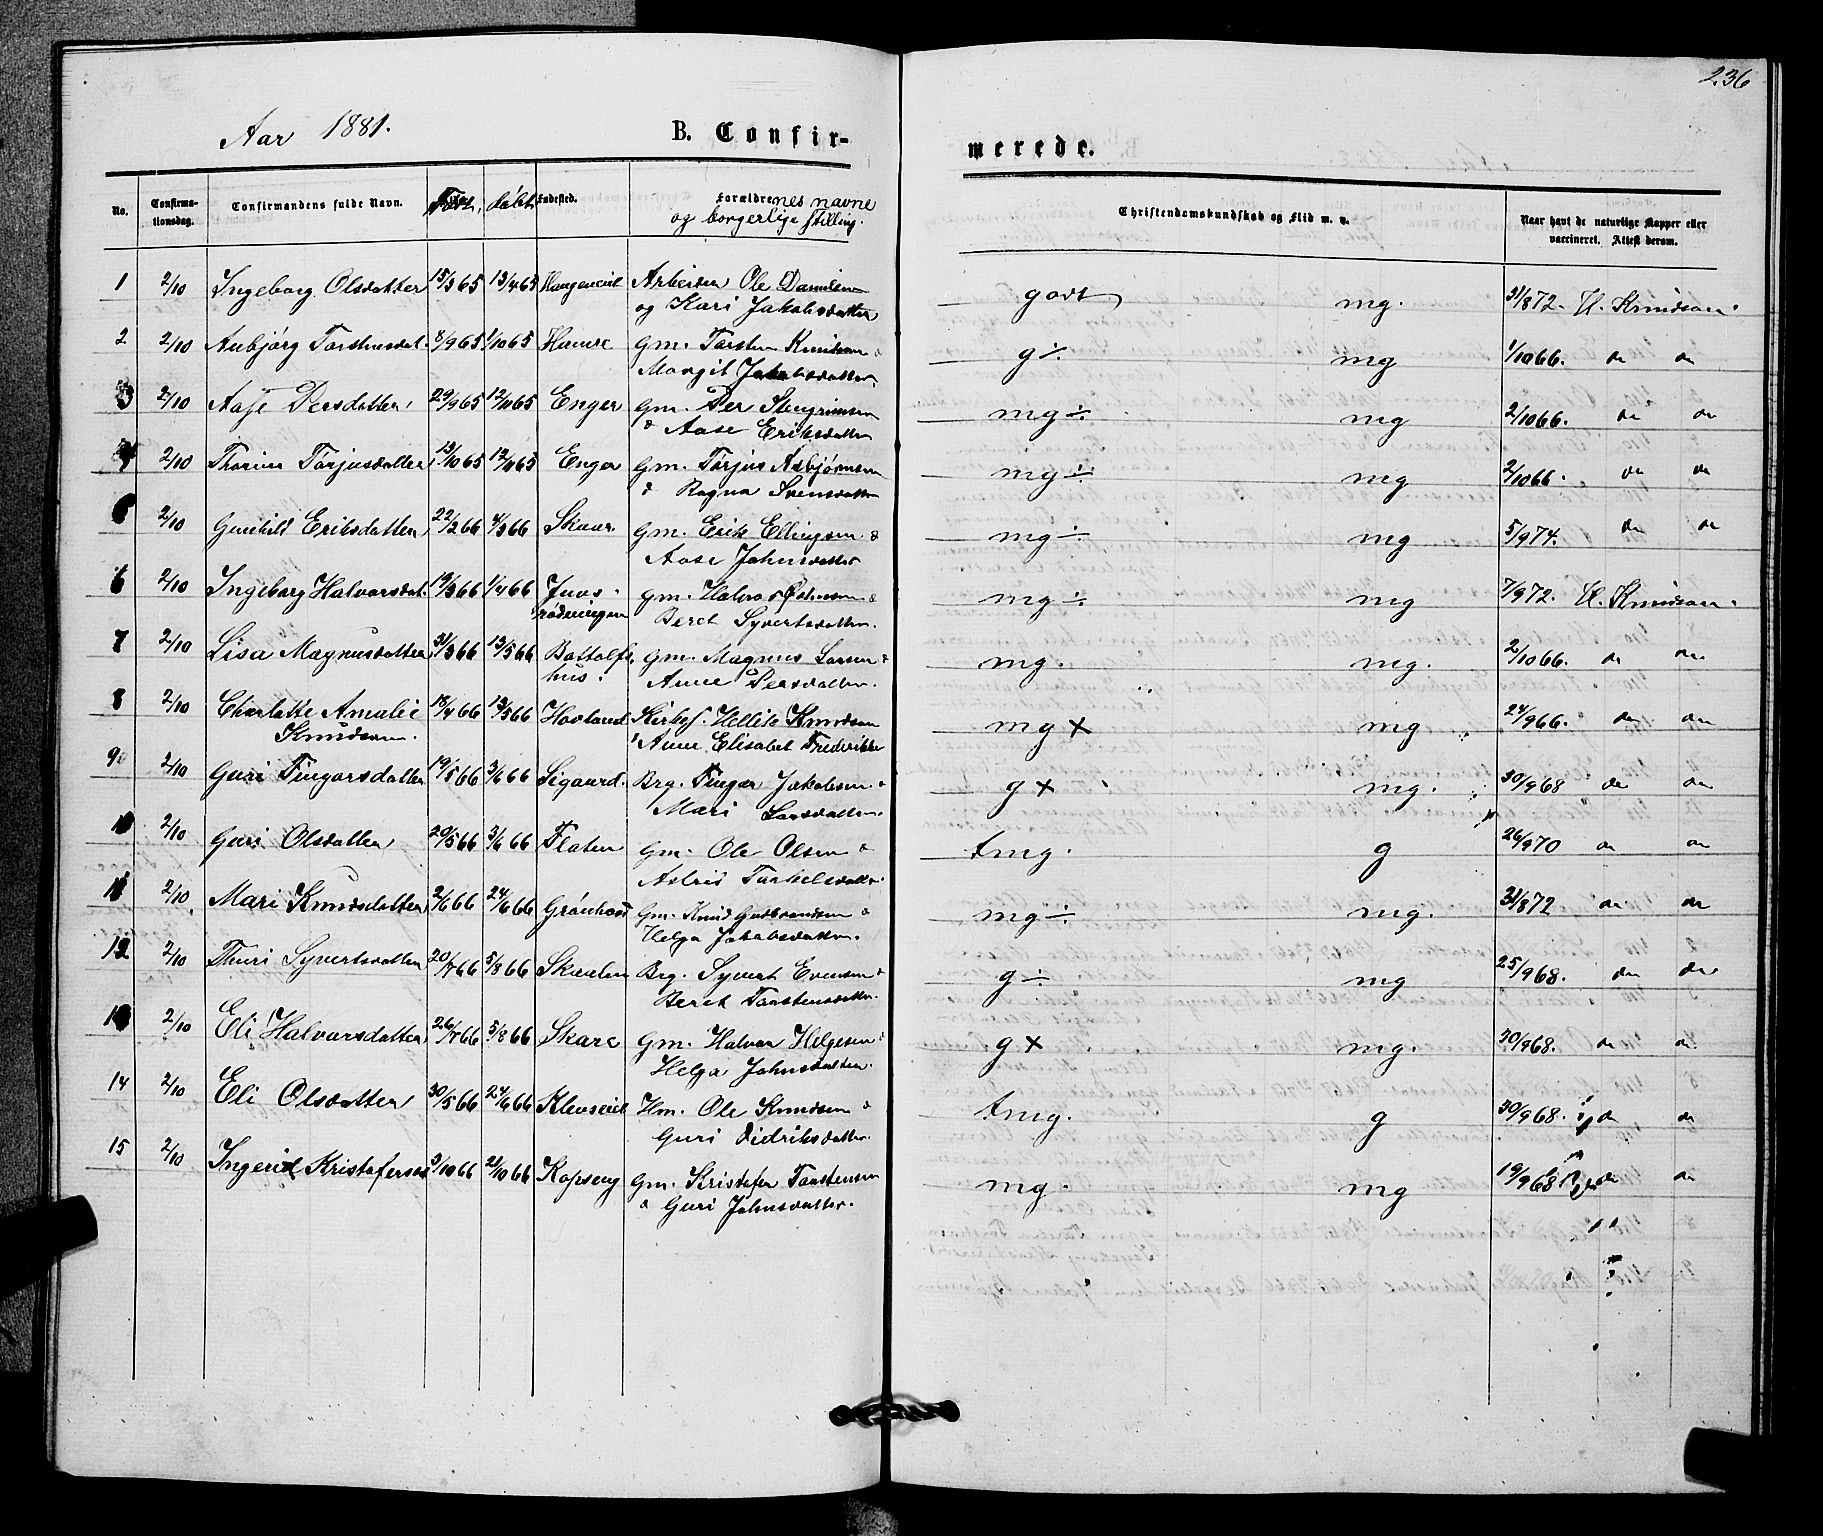 236
Aar 1881.
B. Confir-
merede.
No.
Confirma-
tionsdag.
Confirmandens fulde Navn.
Født,
døbt
Fødested.
Forældrenes navne
og borgerlige stilling.
Christendomskundskab og Flid m. v.
Naar havt de naturlige Kopper eller
vaccineret. Attest derom.
1 2/10 Ingeborg Olsdatter 15/3 65 13/4 65 Haugeneiet Arbeider Ole Danielsen
og Kari Jakobsdatter
godt mg. 31/8 72. H. Knudsen.
2 2/10 Anbjørg Torstensdat. 8/9 65 1/10 65 Haavre Gm. Torsten Knudsen &
Margit Jakobsdatter
g÷ mg 1/10 66. do do
3 2/10 Aase Persdatter 29/9 65 12/11 65 Enger Gm. Per Stengrimsen
& Aase Eriksdatter
mg÷ mg 2/10 66. do do
4 2/10 Thorine Torjusdatter 13/10 65 12/11 65 Enger Gm. Torjus Asbjørnsen
& Ragna Svensdatter
mg÷ mg 2/10 66. do do
5 2/10 Gunhild Eriksdatter 22/2 66 4/3 66 Skaar Gm. Erik Ellingsen &
Aase Johnsdatter
mg÷ mg 5/9 74. do do
6 2/10 Ingeborg Halvorsdat. 19/3 66 1/4 66 Juvs-
rødningen
Gm. Halvor Østensen &
Beret Syvertsdatter.
mg÷ mg 7/9 72. H. Knudsen.
7 2/10 Lisa Magnusdatter 31/3 66 13/5 66 Bottolfs
hus.
Gm. Magnus Larsen &
Anne Persdatter.
mg. mg. 2/10 66. do do
8 2/10 Charlotte Amalie
Knudsen.
18/4 66 13/5 66 Hovland Kirkes. Hellik Knudsen
& Anne Elisabet Frederikke
mg x mg 24/9 66. do do
9 2/10 Guri Fingarsdatter 19/5 66 3/6 66 Sigaard. Brg. Fingar Jakobsen &
Mari Larsdatter.
g x mg. 30/9 68 do do
10 2/10 Guri Olsdatter 20/5 66 3/6 66 Floten Gm. Ole Olsen &
Astrid Torkelsdatter
tmg. g 26/9 70 do do
11 2/10 Mari Knudsdatter 2/6 66 24/6 66 Grønhovd Gm. Knud Gudbrandsen &
Helga Jakobsdatter.
mg÷ mg. 31/8 72 do do
12 2/10 Thuri Syvertsdatter 20/7 66 5/8 66 Skaalen Brg. Syvert Evensen &
Beret Torstensdatter.
g÷ mg 25/9 68. do do
13 2/10 Eli Halvorsdatter 26/7 66 5/8 66 Skare Gm. Halvor Helgesen &
Helga Johnsdatter.
g x mg. 30/9 68. do do
14 2/10 Eli Olsdatter 30/5 66 24/6 66 Klevseiet Hm. Ole Knudsen &
Guri Didriksdatter.
tmg. g 30/9 68. do do
15 2/10 Ingerid Kristofersd. 3/10 66 21/10 66 Kopseng Gm. Kristofer Torstensen
& Guri Johnsdatter.
mg. mg 19/9 68 do do